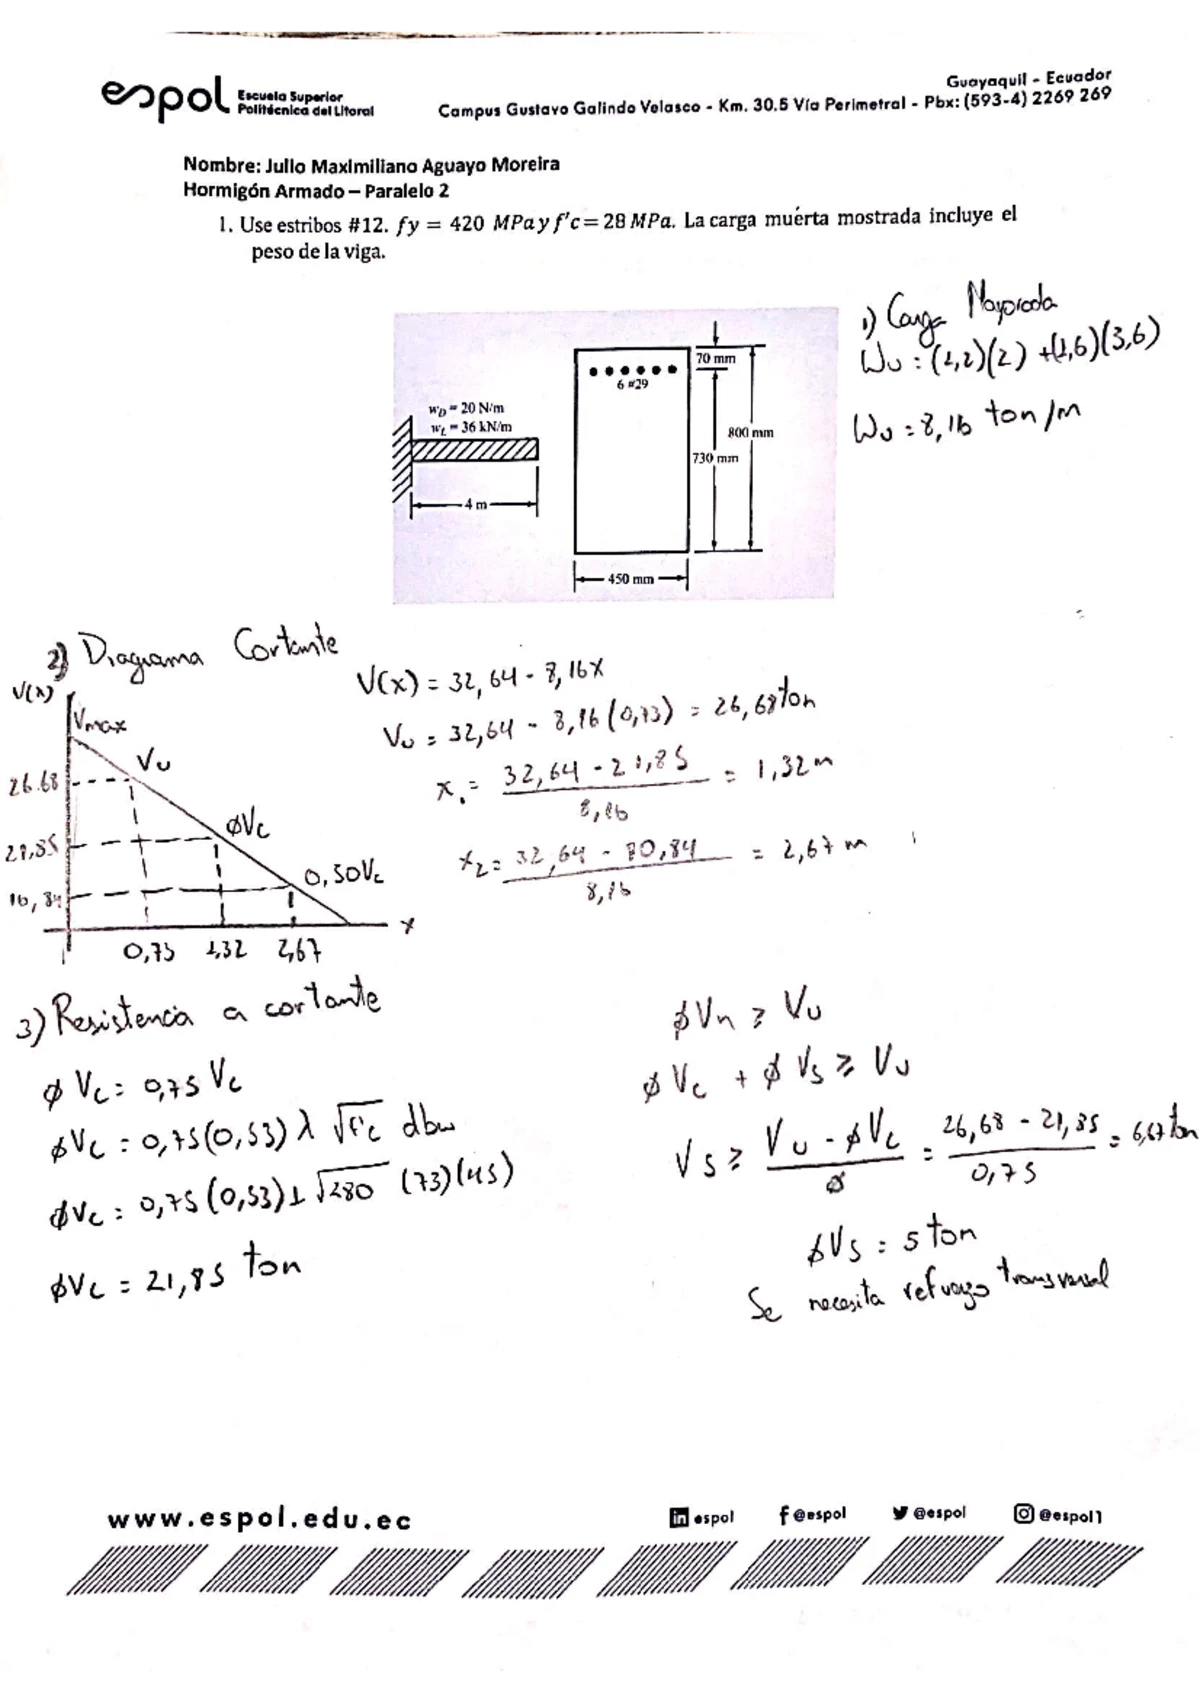 espol Escuela Superior Politécnica del Litoral
Guayaquil - Ecuador
Campus Gustavo Galindo Velasco - Km. 30.5 Vía Perimetral - Pbx: (593-4) 2269 269
Nombre: Julio Maximiliano Aguayo Moreira
Hormigón Armado – Paralelo 2
1. Use estribos #12. fy = 420 MPa y f'c = 28 MPa. La carga muérta mostrada incluye el
peso de la viga.
1) Carga Mayorada
Wu : (1,2)(2) + (1,6)(3,6)
Wu = 8,16 ton/m
70 mm
6 #29
w_D = 20 N/m
w_L = 36 kN/m
800 mm
730 mm
4 m
450 mm
2) Diagrama Cortante
V(x)
Vmax
Vu
26.68
ϕVc
21,85
0,50Vc
10,84
x
0,73 1,32 2,67
V(x) = 32,64 - 8,16x
Vu = 32,64 - 8,16(0,73) = 26,68 ton
x₁ = (32,64 - 21,85)/8,16 = 1,32 m
x₂ = (32,64 - 10,84)/8,16 = 2,67 m
3) Resistencia a cortante
ϕVc = 0,75 Vc
ϕVc = 0,75(0,53) λ √f'c dbw
ϕVc = 0,75(0,53)1 √280 (73)(45)
ϕVc = 21,85 ton
ϕVn ≥ Vu
ϕVc + ϕVs ≥ Vu
Vs ≥ (Vu - ϕVc)/ϕ = (26,68 - 21,85)/0,75 = 6,67 ton
ϕVs = 5 ton
Se necesita refuerzo transversal
www.espol.edu.ec
in espol f @espol @espol @espol1